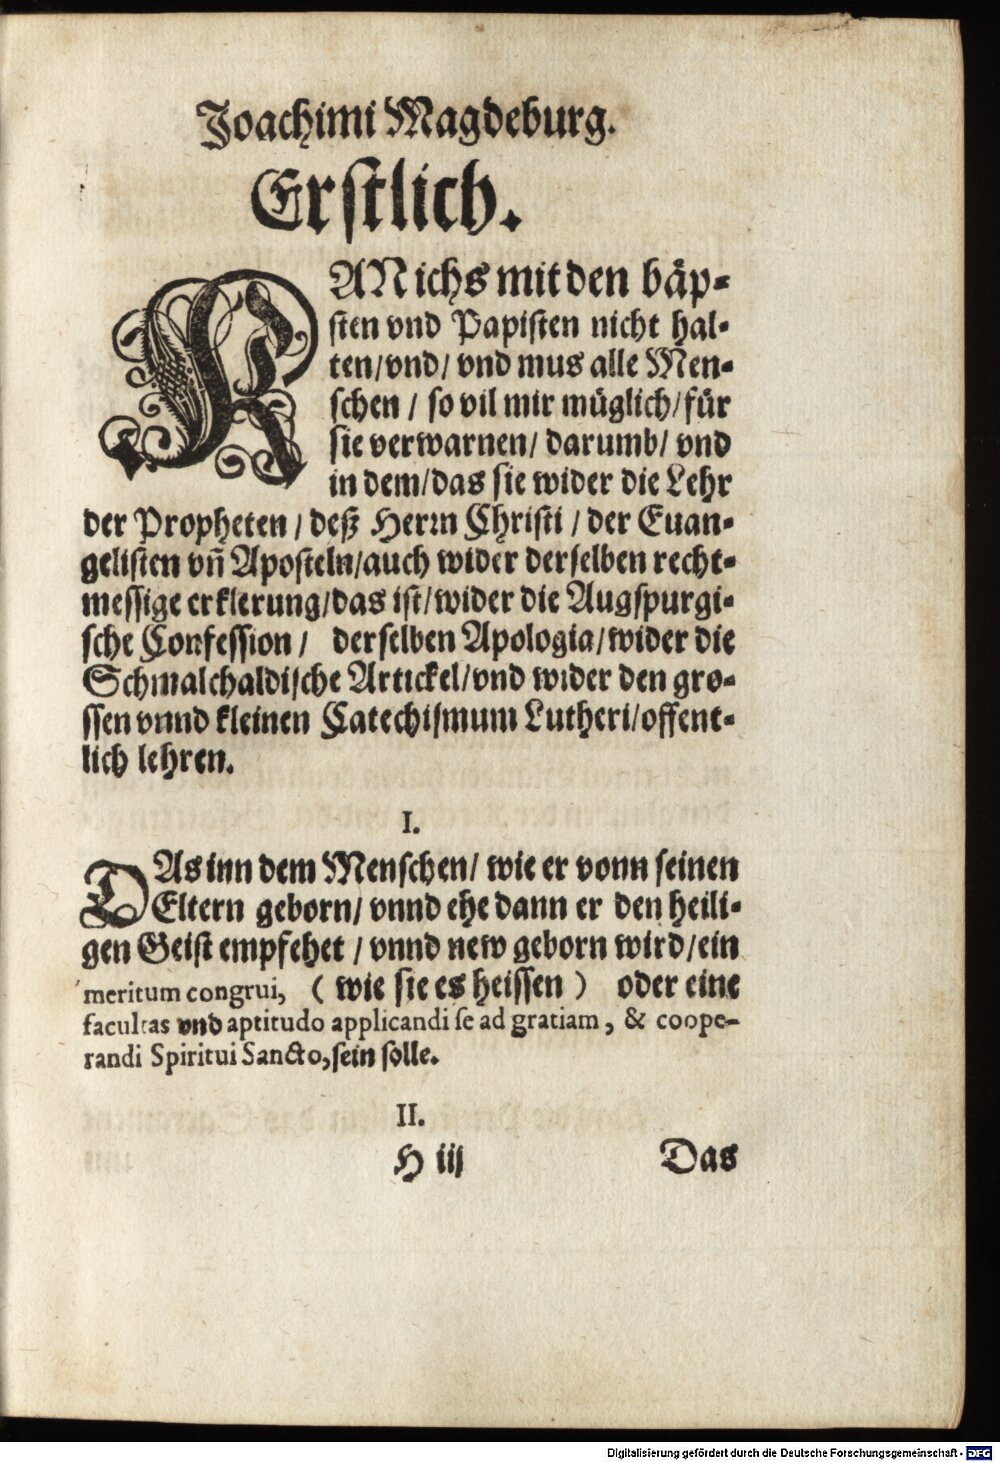 Joachimi Magdeburg.
Erstlich.
KAN ichs mit den bäp-
sten vnd Papisten nicht hal-
ten/vnd/ vnd mus alle Men-
schen / so vil mir müglich/für
sie verwarnen/ darumb/ vnd
in dem/das sie wider die Lehr
der Propheten / deß Herrn Christi / der Euan-
gelisten vñ Aposteln/auch wider derselben recht-
messige erklerung/das ist/wider die Augspurgi-
sche Confession / derselben Apologia/wider die
Schmalchaldische Artickel/vnd wider den gro-
ssen vnnd kleinen Catechismum Lutheri/offent-
lich lehren.
I.
DAs inn dem Menschen/ wie er vonn seinen
Eltern geborn/ vnnd ehe dann er den heili-
gen Geist empfehet / vnnd new geborn wird/ein
meritum congrui, ( wie sie es heissen ) oder eine
facultas vnd aptitudo applicandi se ad gratiam, & coope-
randi Spiritui Sancto, sein solle.
II.
H iij Das
Digitalisierung gefördert durch die Deutsche Forschungsgemeinschaft - DFG